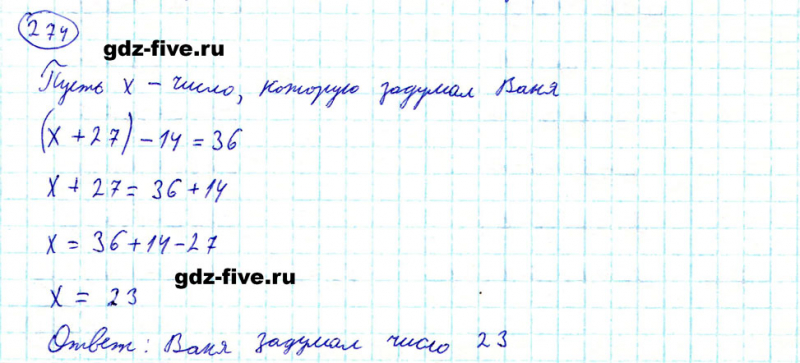 274
gdz-five.ru
Пусть x - число, которую задумал Ваня
(x + 27) - 14 = 36
x + 27 = 36 + 14
x = 36 + 14 - 27
gdz-five.ru
x = 23
Ответ: Ваня задумал число 23